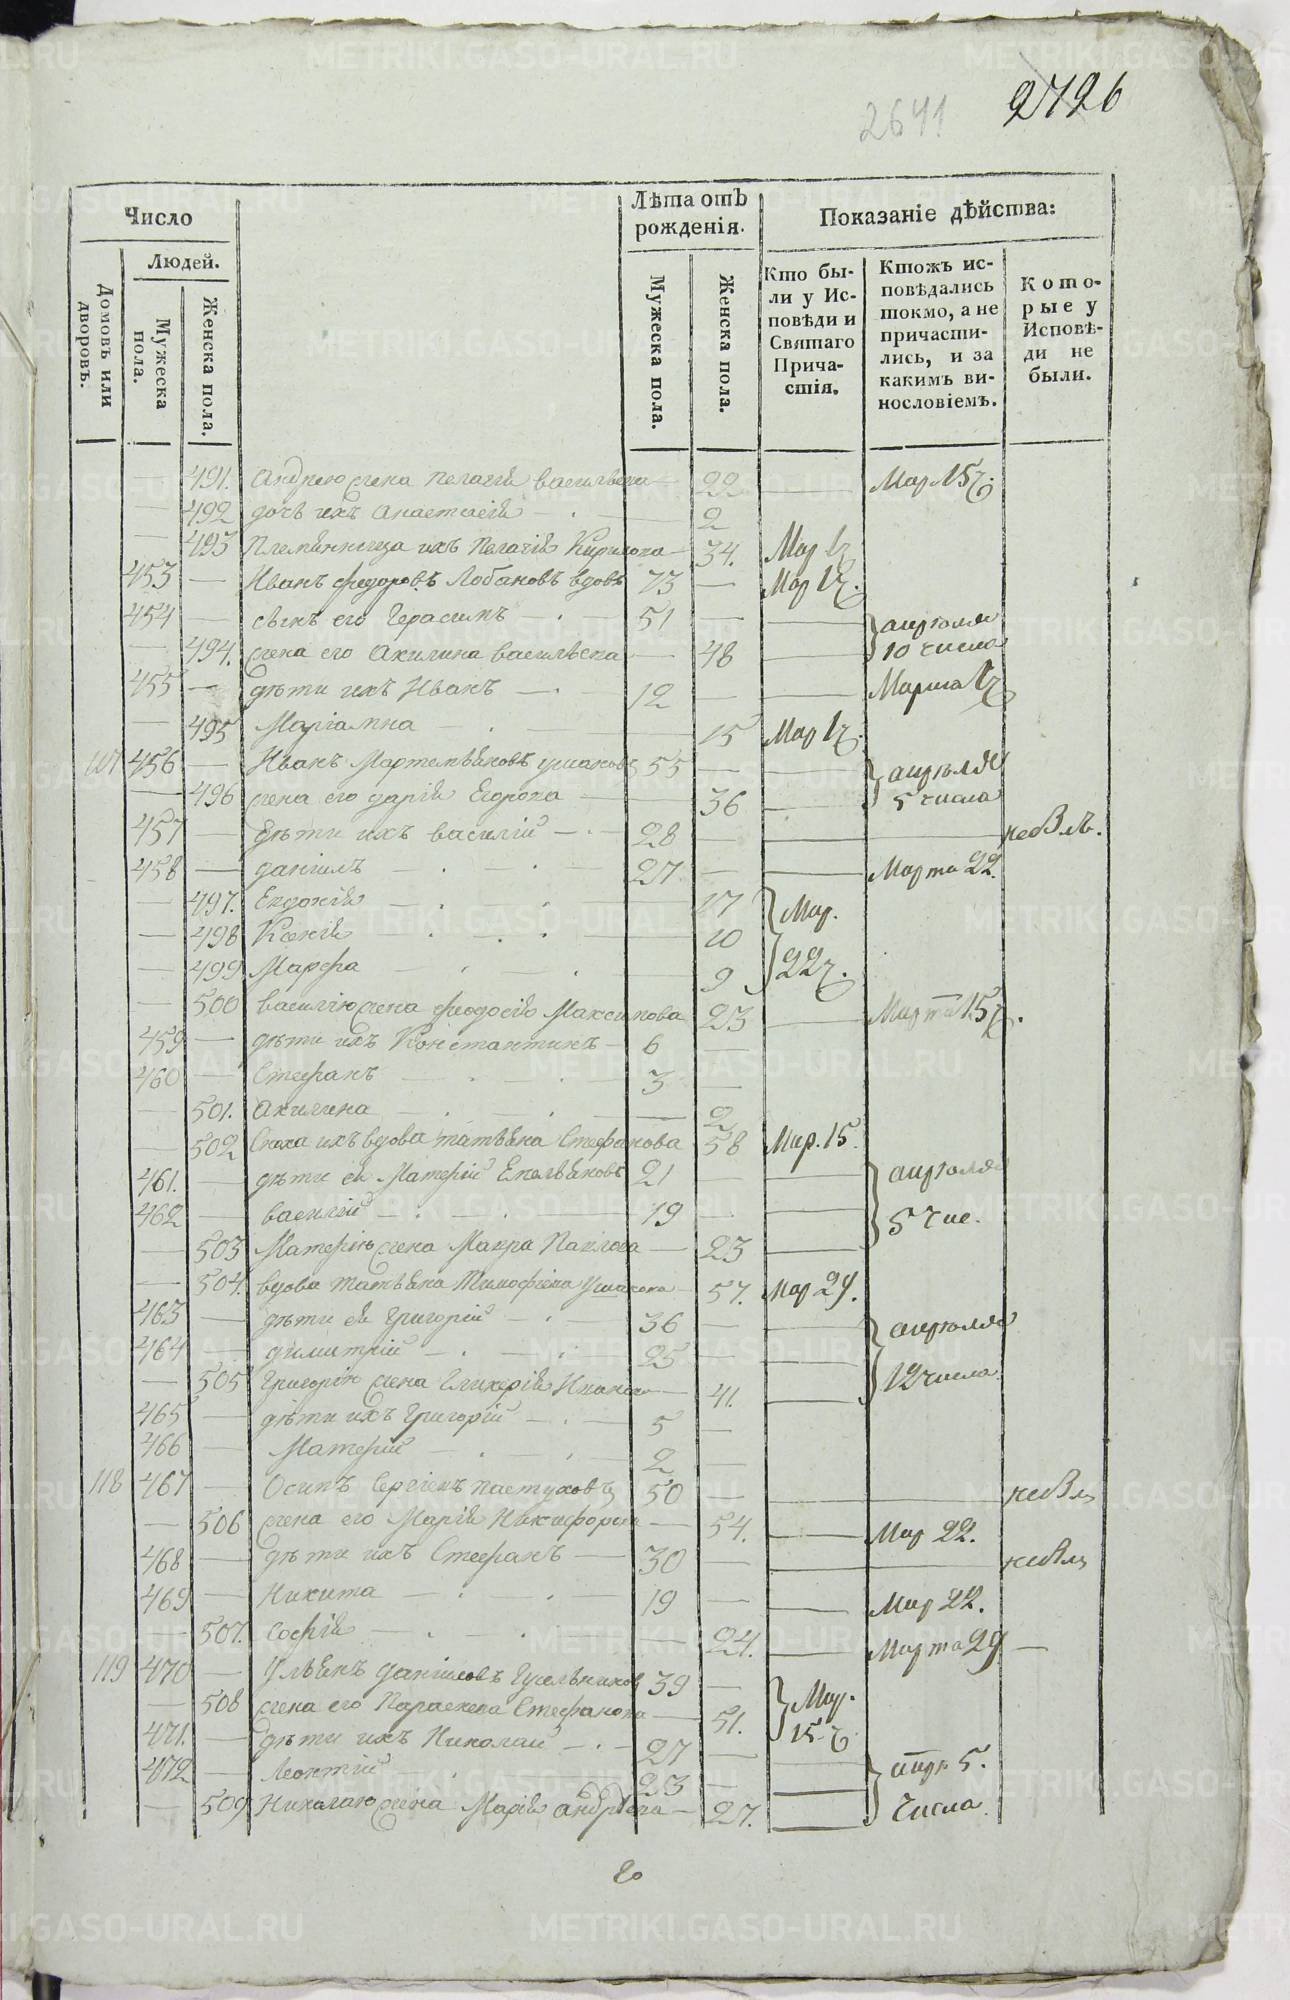 2641
2726
Число
Лѣта отъ рожденія.
Показаніе дѣйства:
Людей.
Домовъ или дворовъ.
Мужеска пола.
Женска пола.
Мужеска пола.
Женска пола.
Кто были у Исповѣди и Святаго Причастія.
Ктожъ исповѣдались токмо, а не причастились, и за какимъ винословіемъ.
Которые у Исповѣди не были.
— 491. Андрею жена Пелагія Васильева — 22 — Мар. 15 ч.
— 492 дочь ихъ Анастасія — 2
— 493 Племянница ихъ Пелагія Кирилова — 34. Мар 1 ч
453 — Иванъ Федоровъ Лобановъ вдовъ 73 — Мар 1 ч.
454 — сынъ его Герасимъ — 51 — — апрѣля
— 494. жена его Акилина Васильева — 48 — 10 числа
455 — дѣти ихъ Иванъ — 12 — — Марта 1 ч
— 495 Маріамна — 15 Мар 1 ч.
117 456 — Иванъ Мартемьяновъ Ушаковъ 55 — — апрѣля
— 496 жена его Дарія Егорова — 36 — 5 числа
457 — дѣти ихъ Василій — 28 — — не былъ.
458 — Даніилъ — 27 — — Марта 22.
— 497. Евдокія — 17 Мар.
— 498 Ксенія — 10
— 499 Марфа — 9 22 ч.
— 500 Василію жена Феодосія Максимова 23 — Марта 15 ч.
459 — дѣти ихъ Константинъ — 6 —
460 — Стефанъ — 3 —
— 501. Акилина — 2
— 502 Сноха ихъ вдова Татьяна Стефанова 58 Мар. 15.
461. — дѣти ея Матфій Емельяновъ 21 — — апрѣля
462 — Василій — 19 — — 5 чис.
— 503 Матфію жена Мавра Павлова — 23 —
— 504. вдова Татьяна Тимофѣева Ушакова — 57. Мар 29.
463 — дѣти ея Григорій — 36 — — апрѣля
464 — Димитрій — 25 — —
— 505 Григорію жена Гликерія Иванова — 41. — 12 числа
465 — дѣти ихъ Григорій — 5 —
466 — Матфій — 2 —
118 467 — Осипъ Сергіевъ Пастуховъ 50 — — не былъ
— 506 жена его Марія Никифорова — 54. — Мар 22.
468 — дѣти ихъ Стефанъ — 30 — — не былъ
469 — Никита — 19 — — Мар 22.
— 507. Софія — 24. — Марта 29 —
119 470 — Ульянъ Даніиловъ Гусельниковъ 39 — Мар.
— 508 жена его Параскева Стефанова — 51. 15 ч
471. — дѣти ихъ Николай — 27 — — апрѣ. 5.
472 — Леонтій — 23 — —
— 509 Николаю жена Марія Андрѣева — 27. — числа.